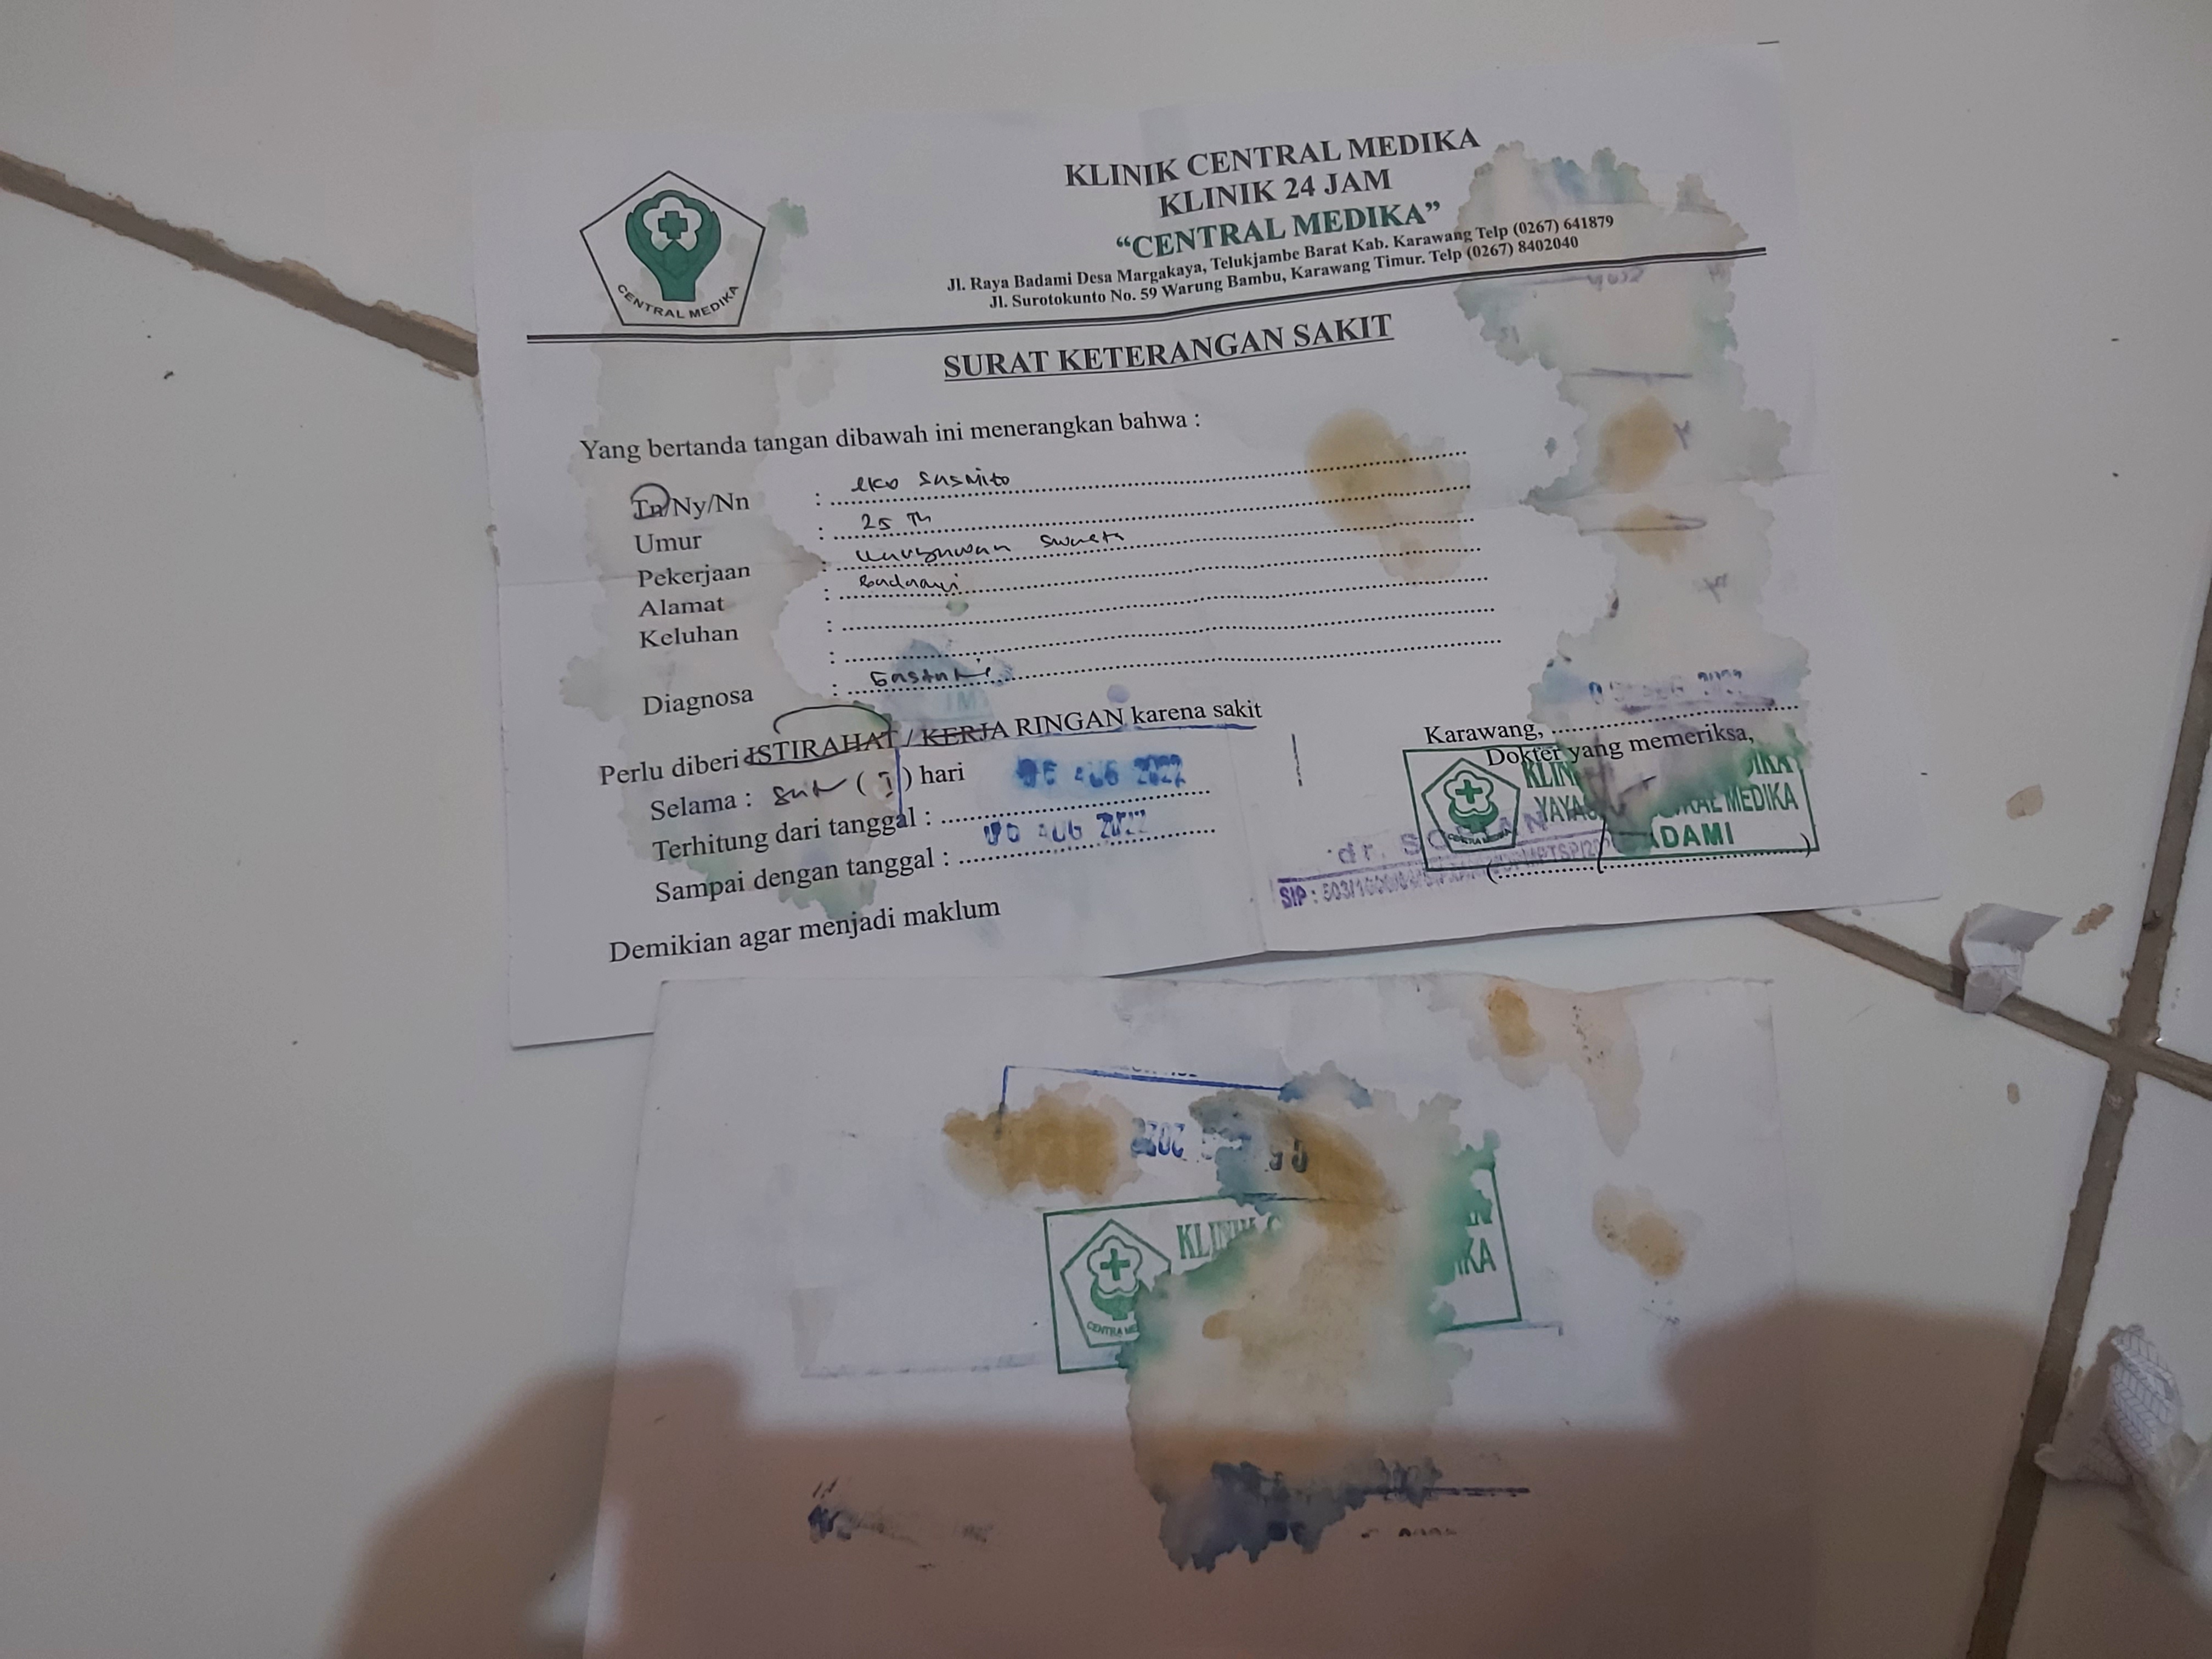 KLINIK CENTRAL MEDIKA
KLINIK 24 JAM
“CENTRAL MEDIKA”
Jl. Raya Badami Desa Margakaya, Telukjambe Barat Kab. Karawang Telp (0267) 641879
Jl. Surotokunto No. 59 Warung Bambu, Karawang Timur. Telp (0267) 8402040
CENTRAL MEDIKA
SURAT KETERANGAN SAKIT
Yang bertanda tangan dibawah ini menerangkan bahwa :
Tn/Ny/Nn : eko Sasmito
Umur : 25 Th
Pekerjaan : Karyawan Swasta
Alamat : Badami
Keluhan :
Diagnosa :
Perlu diberi ISTIRAHAT / KERJA RINGAN karena sakit
Selama : ( 1 ) hari
Terhitung dari tanggal : AUG 2022
Sampai dengan tanggal : AUG 2022
Demikian agar menjadi maklum
Karawang,
Dokter yang memeriksa,
MEDIKA
dr.
SIP : 503/
KLINIK
2022